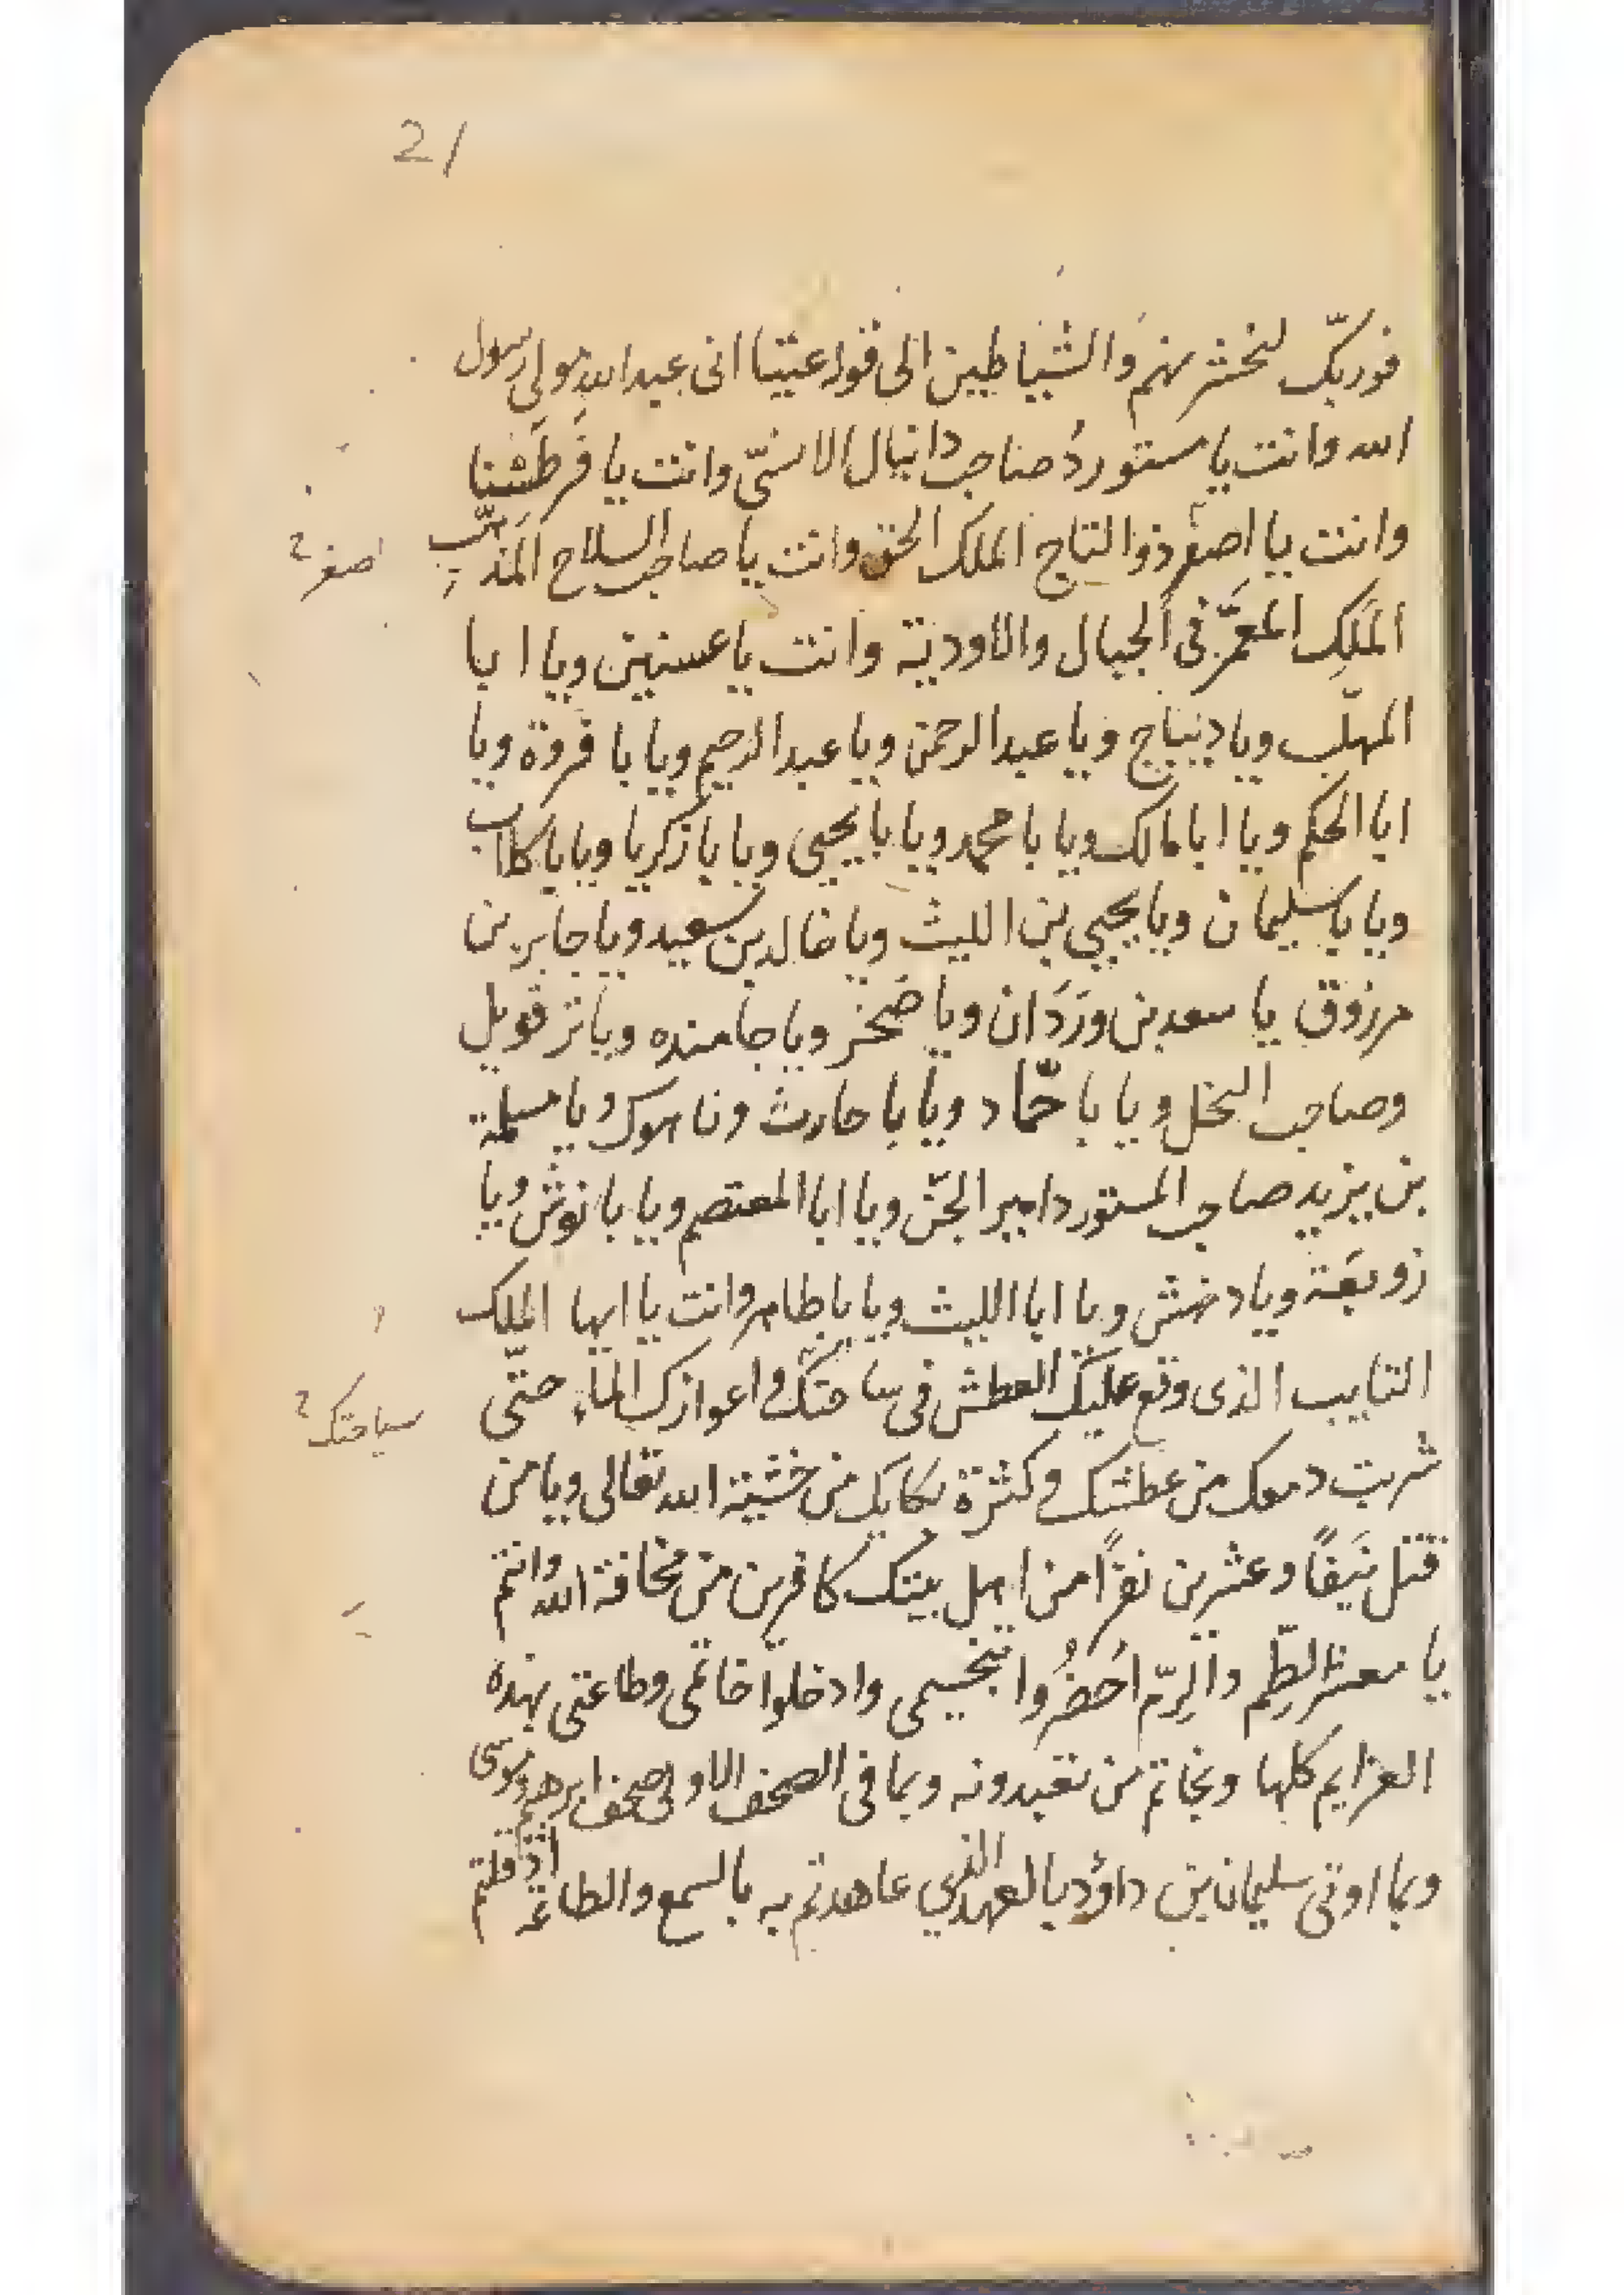 21
فوربّك لنحشرنهم والشياطين الى قوله عتيا انى عبد الله مولى رسول
الله وانت يا ستورد صاحب دانيال الانسىّ وانت يا قرطشنا
وانت يا اصغر ذو التاج الملك الحق وانت يا صاحب السلاح المذهّب
اصفر ؟
الملك المعمَّر فى الجبال والاودية وانت يا عسنين ويا ابا
المهلّب ويا ديباج ويا عبد الرحمن ويا عبد الرحيم ويا با فروة ويا
ابا الحكم ويا ابا مالك ويا با محمد ويا با يحيى ويا با زكريا ويا با كلاب
ويا با سليمان ويا يحيى بن الليث ويا خالد بن سعيد ويا جابر بن
مرزوق يا سعد بن وردَان ويا صخر ويا جامنده ويا ترقويل
وصاحب النخل ويا با حمّاد ويا با حارث وناسوك ويا مسلمة
بن يزيد صاحب المستورد امير الجنّ ويا ابا المعتصم ويا با نوش ويا
زوبعَة ويا دنهش ويا ابا الليث ويا با طاهر وانت يا ايها الملك
التايب الذى وقع عليك العطش فى ساحتك واعوازك الماء حتّى
سياحتك ؟
شربت دمعك من عطشك وكثرة بكايك من خشية الله تعالى ويا من
قتل نَيفًا وعشرين نفرًا من اهل بيتك كافرين من مخافة الله وانتم
يا معشر الطِّم والرِّم احَضرُوا تنجيمى وادخلوا خاتمى وطاعتى بهذه
العزايم كلها وبخاتم من تعبدونه وبما فى الصحف الاولى صحف ابرهيم وموسى
وبما اوتى سليمان بن داؤد بالعهد الذي عاهدتم به بالسمع والطاعة اذ قلتم